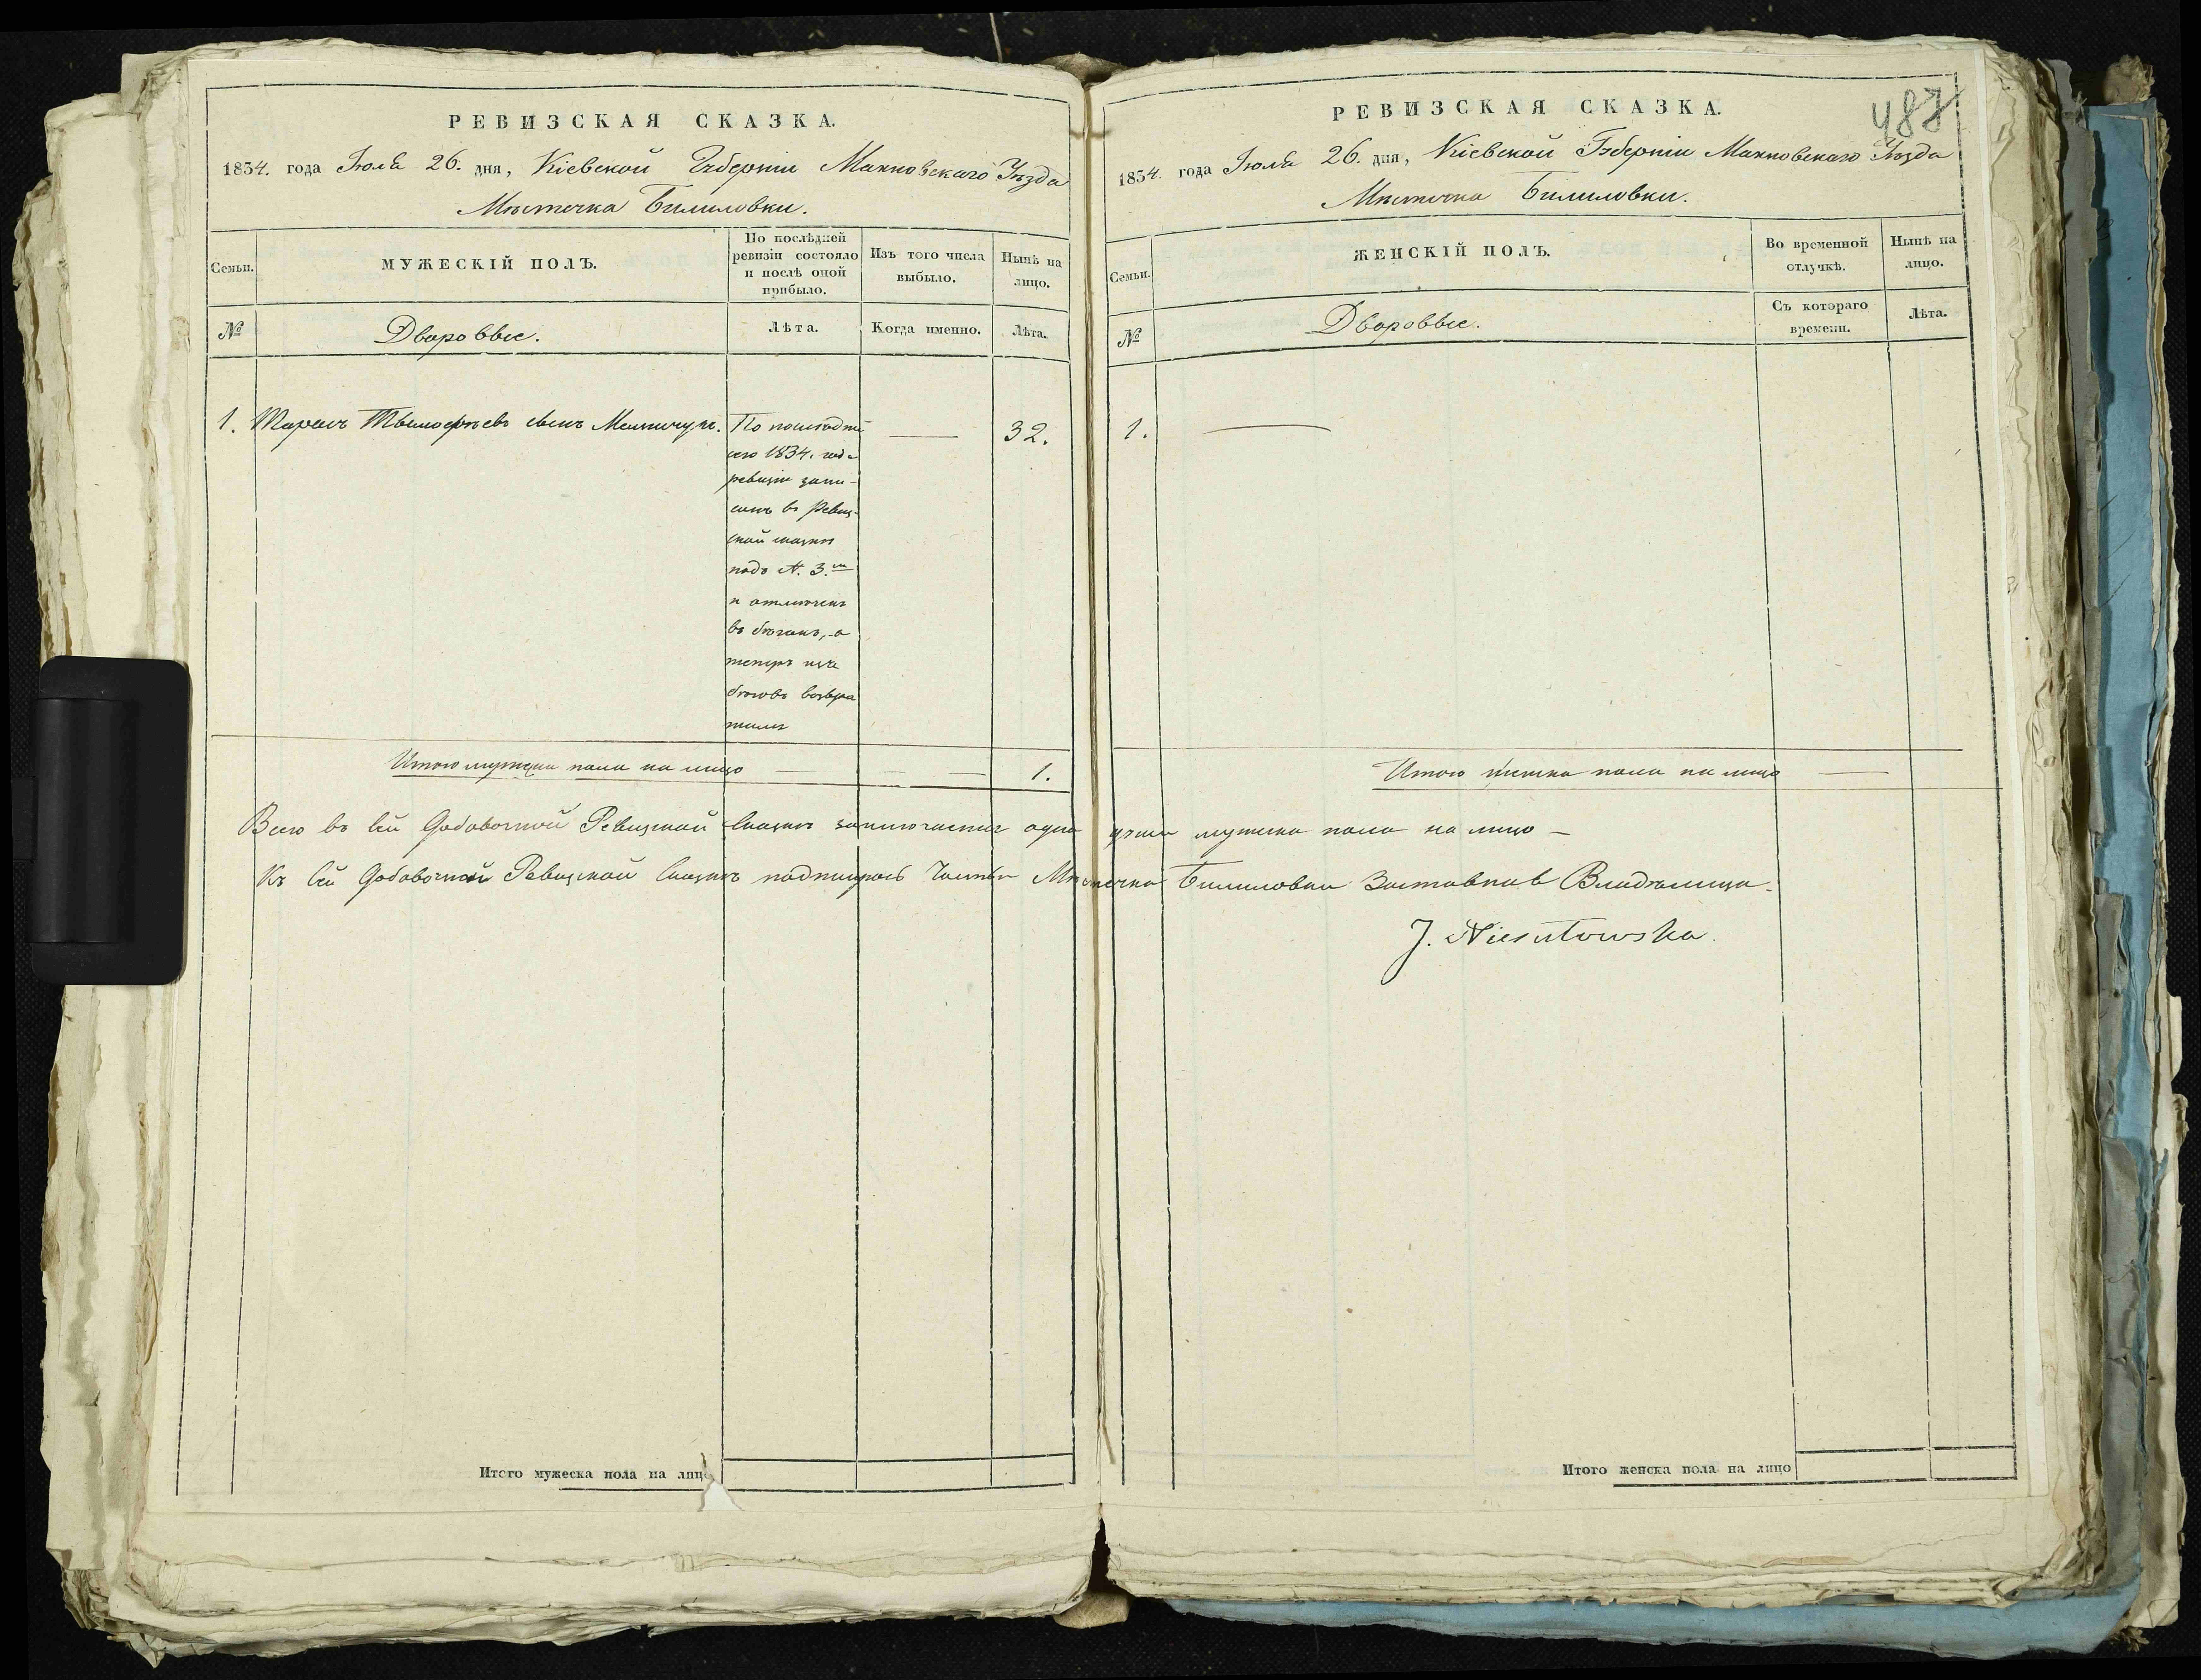 РЕВИЗСКАЯ СКАЗКА.
1834. года Іюля 26. дня, Кіевской Губерніи Махновскаго Уѣзда
Мѣстечка Билиловки.
Семьи.
МУЖЕСКІЙ ПОЛЪ.
По послѣдней ревизіи состояло и послѣ оной прибыло.
Изъ того числа выбыло.
Нынѣ на лицо.
№
Дворовые.
Лѣта.
Когда именно.
Лѣта.
1. Тарасъ сынъ
По последней
сего 1834. года
ревизіи запи-
санъ въ Ревиз-
ской сказки
подъ N. 3.м
и отмеченъ
въ бегахъ, а
теперъ изъ
беговъ возвра
тилсѧ
—
32.
Итого мужеска пола на лицо — — — 1.
РЕВИЗСКАЯ СКАЗКА.
487
1834. года Іюля 26. дня, Кіевской Губерніи Махновскаго Уѣзда
Мѣстечка Билиловки.
Семьи.
ЖЕНСКІЙ ПОЛЪ.
Во временной отлучкѣ.
Нынѣ на лицо.
№
Дворовые.
Съ котораго времени.
Лѣта.
1. —
Итого женска пола на лицо —
Всего въ сей Добавочной Ревизской Сказкѣ заключается одна душа мужеска пола на лицо —
Къ сей Добавочной Ревизской Сказкѣ подписуюсь Части Мѣстечка Билиловки Заставная Владѣлица.
J. Niesułowska.
Итого мужеска пола на лицо
Итого женска пола на лицо